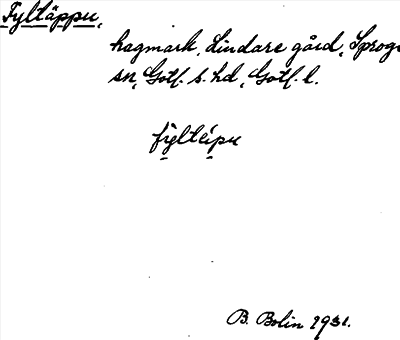 Fyltäppu,
hagmark, Lindare gård, Sproge
sn, Gotl. s. hd, Gotl. l.
fyltäipu
B. Bolin 1931.